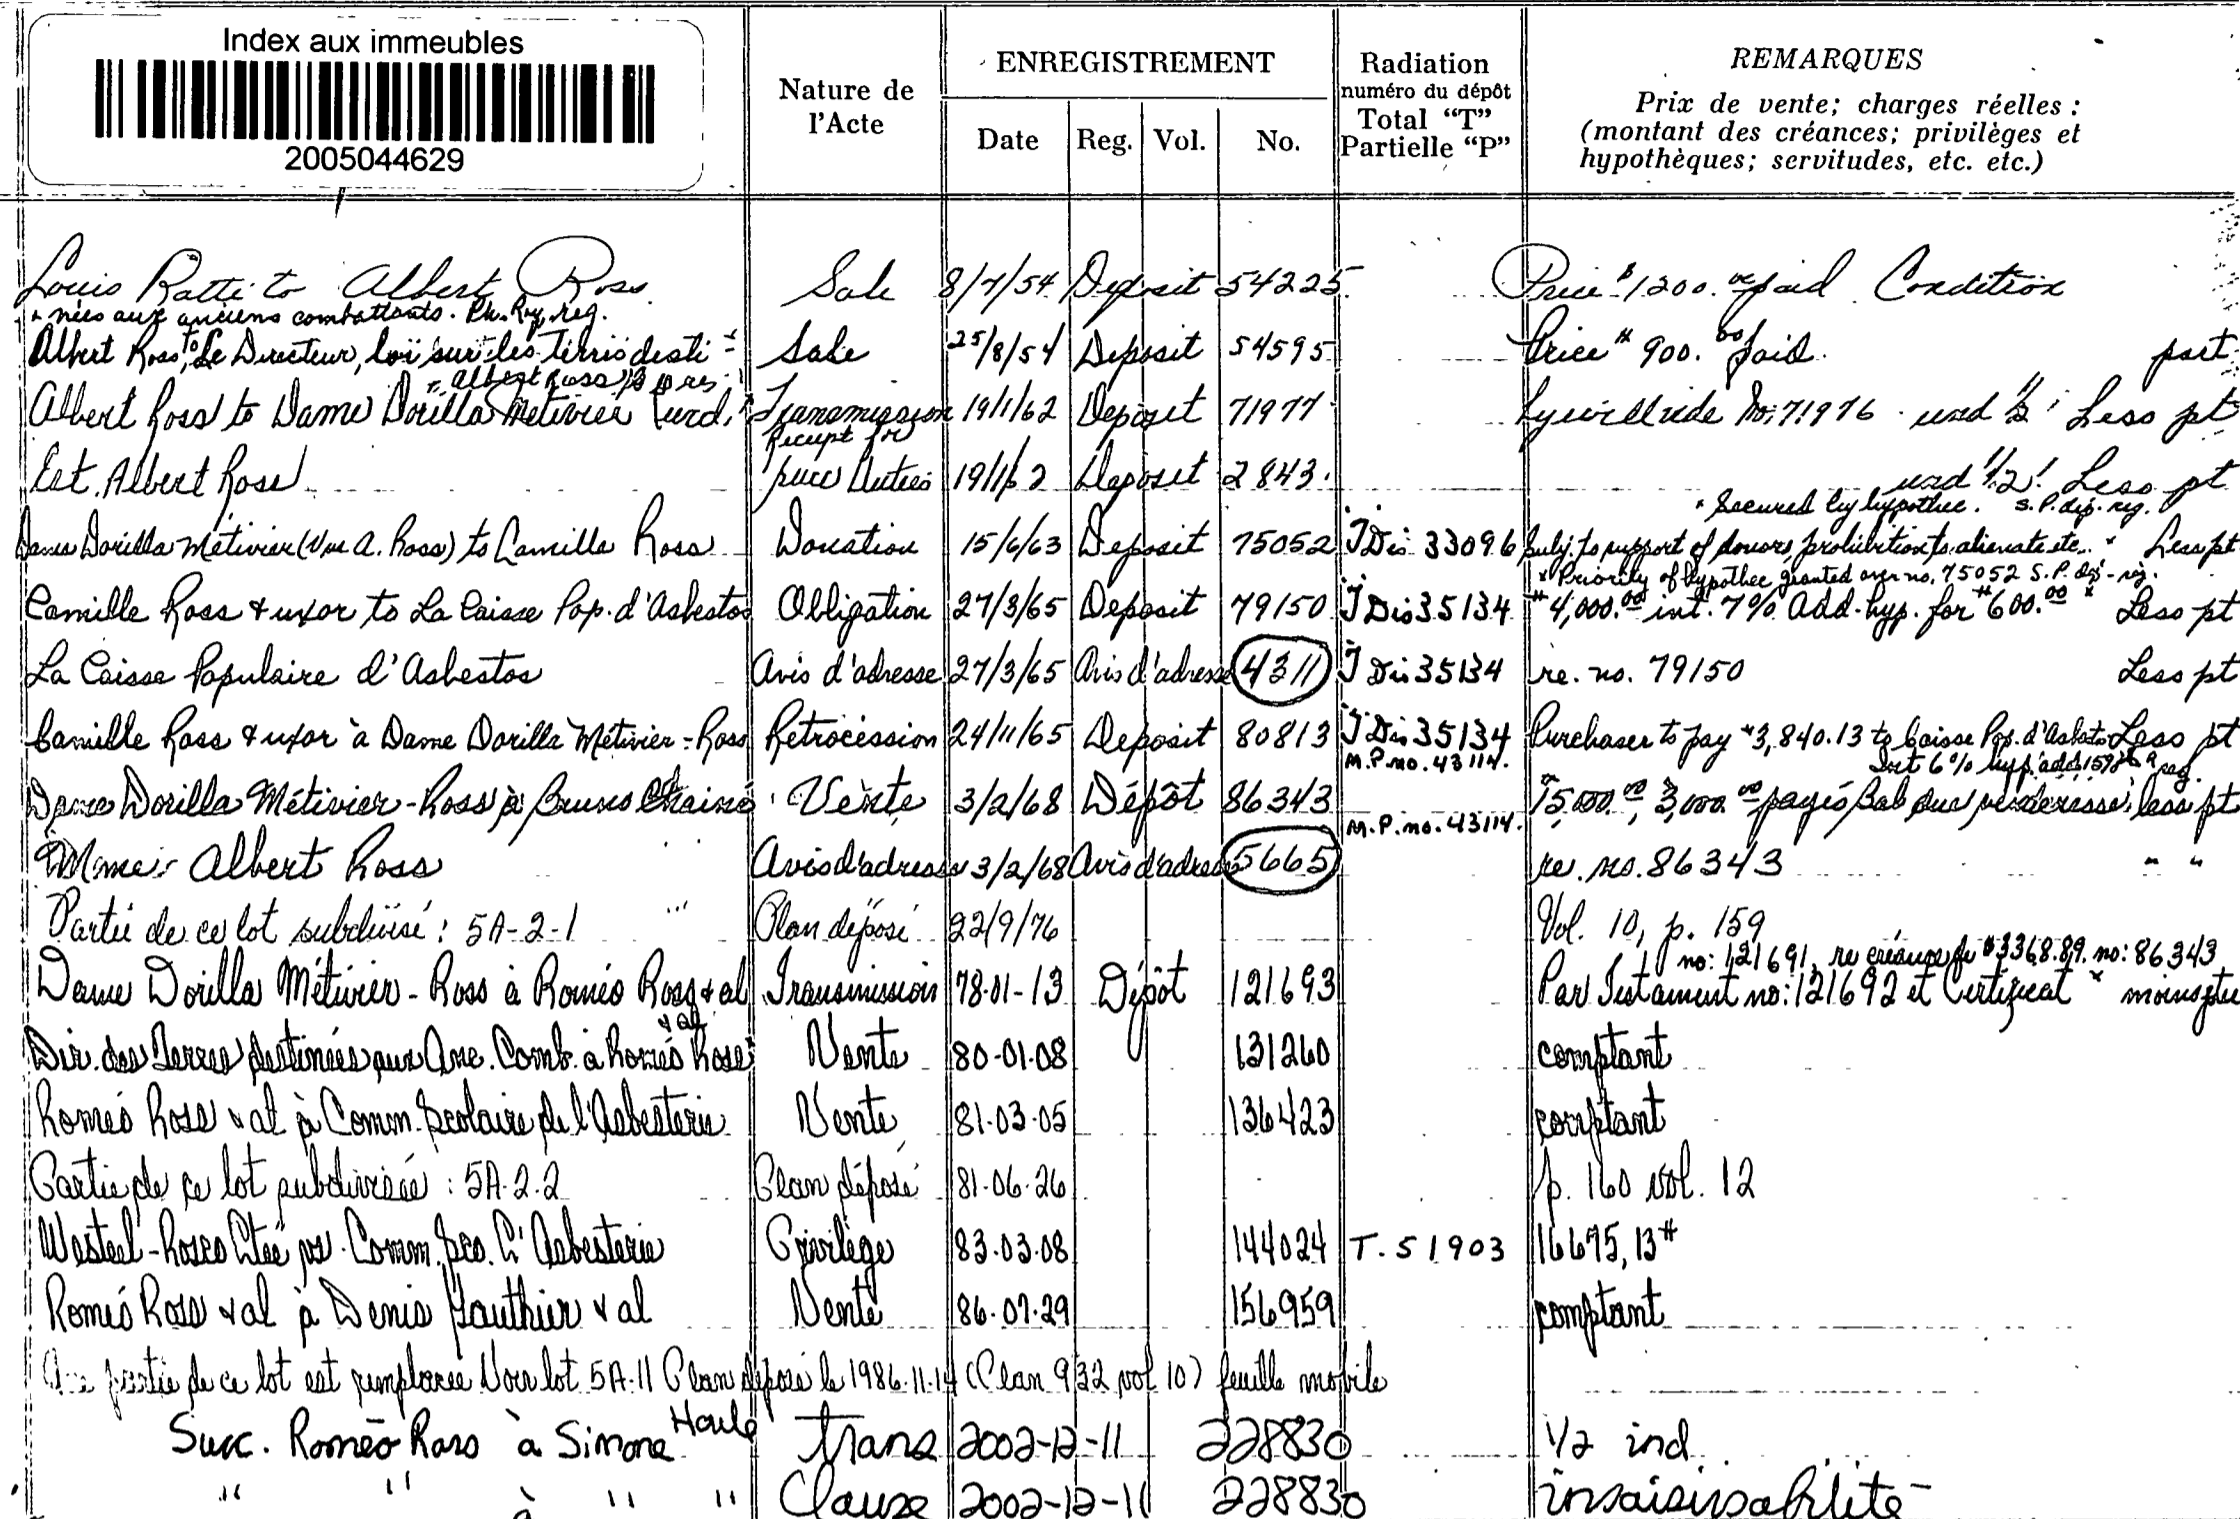 Index aux immeubles
2005044629
Nature de l'Acte
ENREGISTREMENT
Date Reg. Vol. No.
Radiation
numéro du dépôt
Total "T"
Partielle "P"
REMARQUES
Prix de vente; charges réelles :
(montant des créances; privilèges et
hypothèques; servitudes, etc. etc.)
Louis Ratti to Albert Ross Sale 8/7/54 Deposit 54225 Price $1200.00 paid Condition
nées aux anciens combattants. Ph. Roy, reg.
Albert Ross to Le Directeur, loi sur les terres desti= Sale 25/8/54 Deposit 54595 Price $ 900.00 paid. part
Albert Ross
Albert Ross to Dame Dorilla Métivier (und. Transmission 19/1/62 Deposit 71977 by will vide No: 71976 und 1/2 Less pt
Est. Albert Ross Receipt for succ Duties 19/1/62 Deposit 2843. und 1/2 Less pt
* Secured by hypothec. S.P. dep. reg.
Dame Dorilla Métivier (Vve A. Ross) to Camille Ross Donation 15/6/63 Deposit 75052 T Dis 33096 Subj. to support of donors, prohibition to alienate etc. * Less pt
* Priority of hypothec granted over no. 75052 S.P. dep-reg.
Camille Ross & uxor to La Caisse Pop. d'Asbestos Obligation 27/3/65 Deposit 79150 T Dis 35134 $4,000.00 int. 7% Add. hyp. for $600.00 * Less pt
La Caisse Populaire d'Asbestos Avis d'adresse 27/3/65 Avis d'adresse 4311 T Dis 35134 re. no. 79150 Less pt
Camille Ross & uxor à Dame Dorilla Métivier-Ross Rétrocession 24/11/65 Deposit 80813 T Dis 35134 Purchaser to pay $3,840.13 to Caisse Pop. d'Asbestos Less pt
M.P. no. 43114. Int 6% hyp. add.
Dame Dorilla Métivier-Ross à Bruno Chainé Vente 3/2/68 Dépôt 86343 3,000.00 payés Bal due venderesse less pt
M.P. no. 43114.
Mme Albert Ross Avis d'adresse 3/2/68 Avis d'adresse 5665 re. no. 86343 " "
Partie de ce lot subdivisé: 5A-2-1 Plan déposé 22/9/76 Vol. 10, p. 159
no: 121691 re créance de $3368.89. no: 86343
Dame Dorilla Métivier-Ross à Roméo Ross & al Transmission 78-01-13 Dépôt 121693 Par Testament no: 121692 et Certificat * moins ptie
Dir. des Terres destinées aux Anc. Comb. à Roméo Ross & al Vente 80-01-08 131260 comptant
Roméo Ross & al à Comm. Scolaire de l'Asbesterie Vente 81-03-05 136423 comptant
Partie de ce lot subdivisée : 5A-2-2 Plan déposé 81-06-26 p. 160 vol. 12
Westeel-Rosco Ltée vs. Comm. Sco. L'Asbesterie Privilège 83-03-08 144024 T. 51903 16675,13$
Roméo Ross & al à Denis Gauthier & al Vente 86-07-29 156959 comptant
Une partie de ce lot est remplacée Voir lot 5A-11 Plan déposé le 1986-11-14 (Plan 932 vol 10) feuille mobile
Succ. Roméo Ross à Simone Houle trans 2002-12-11 228830 1/2 ind
" " à " " Clause 2002-12-11 228830 insaisissabilité